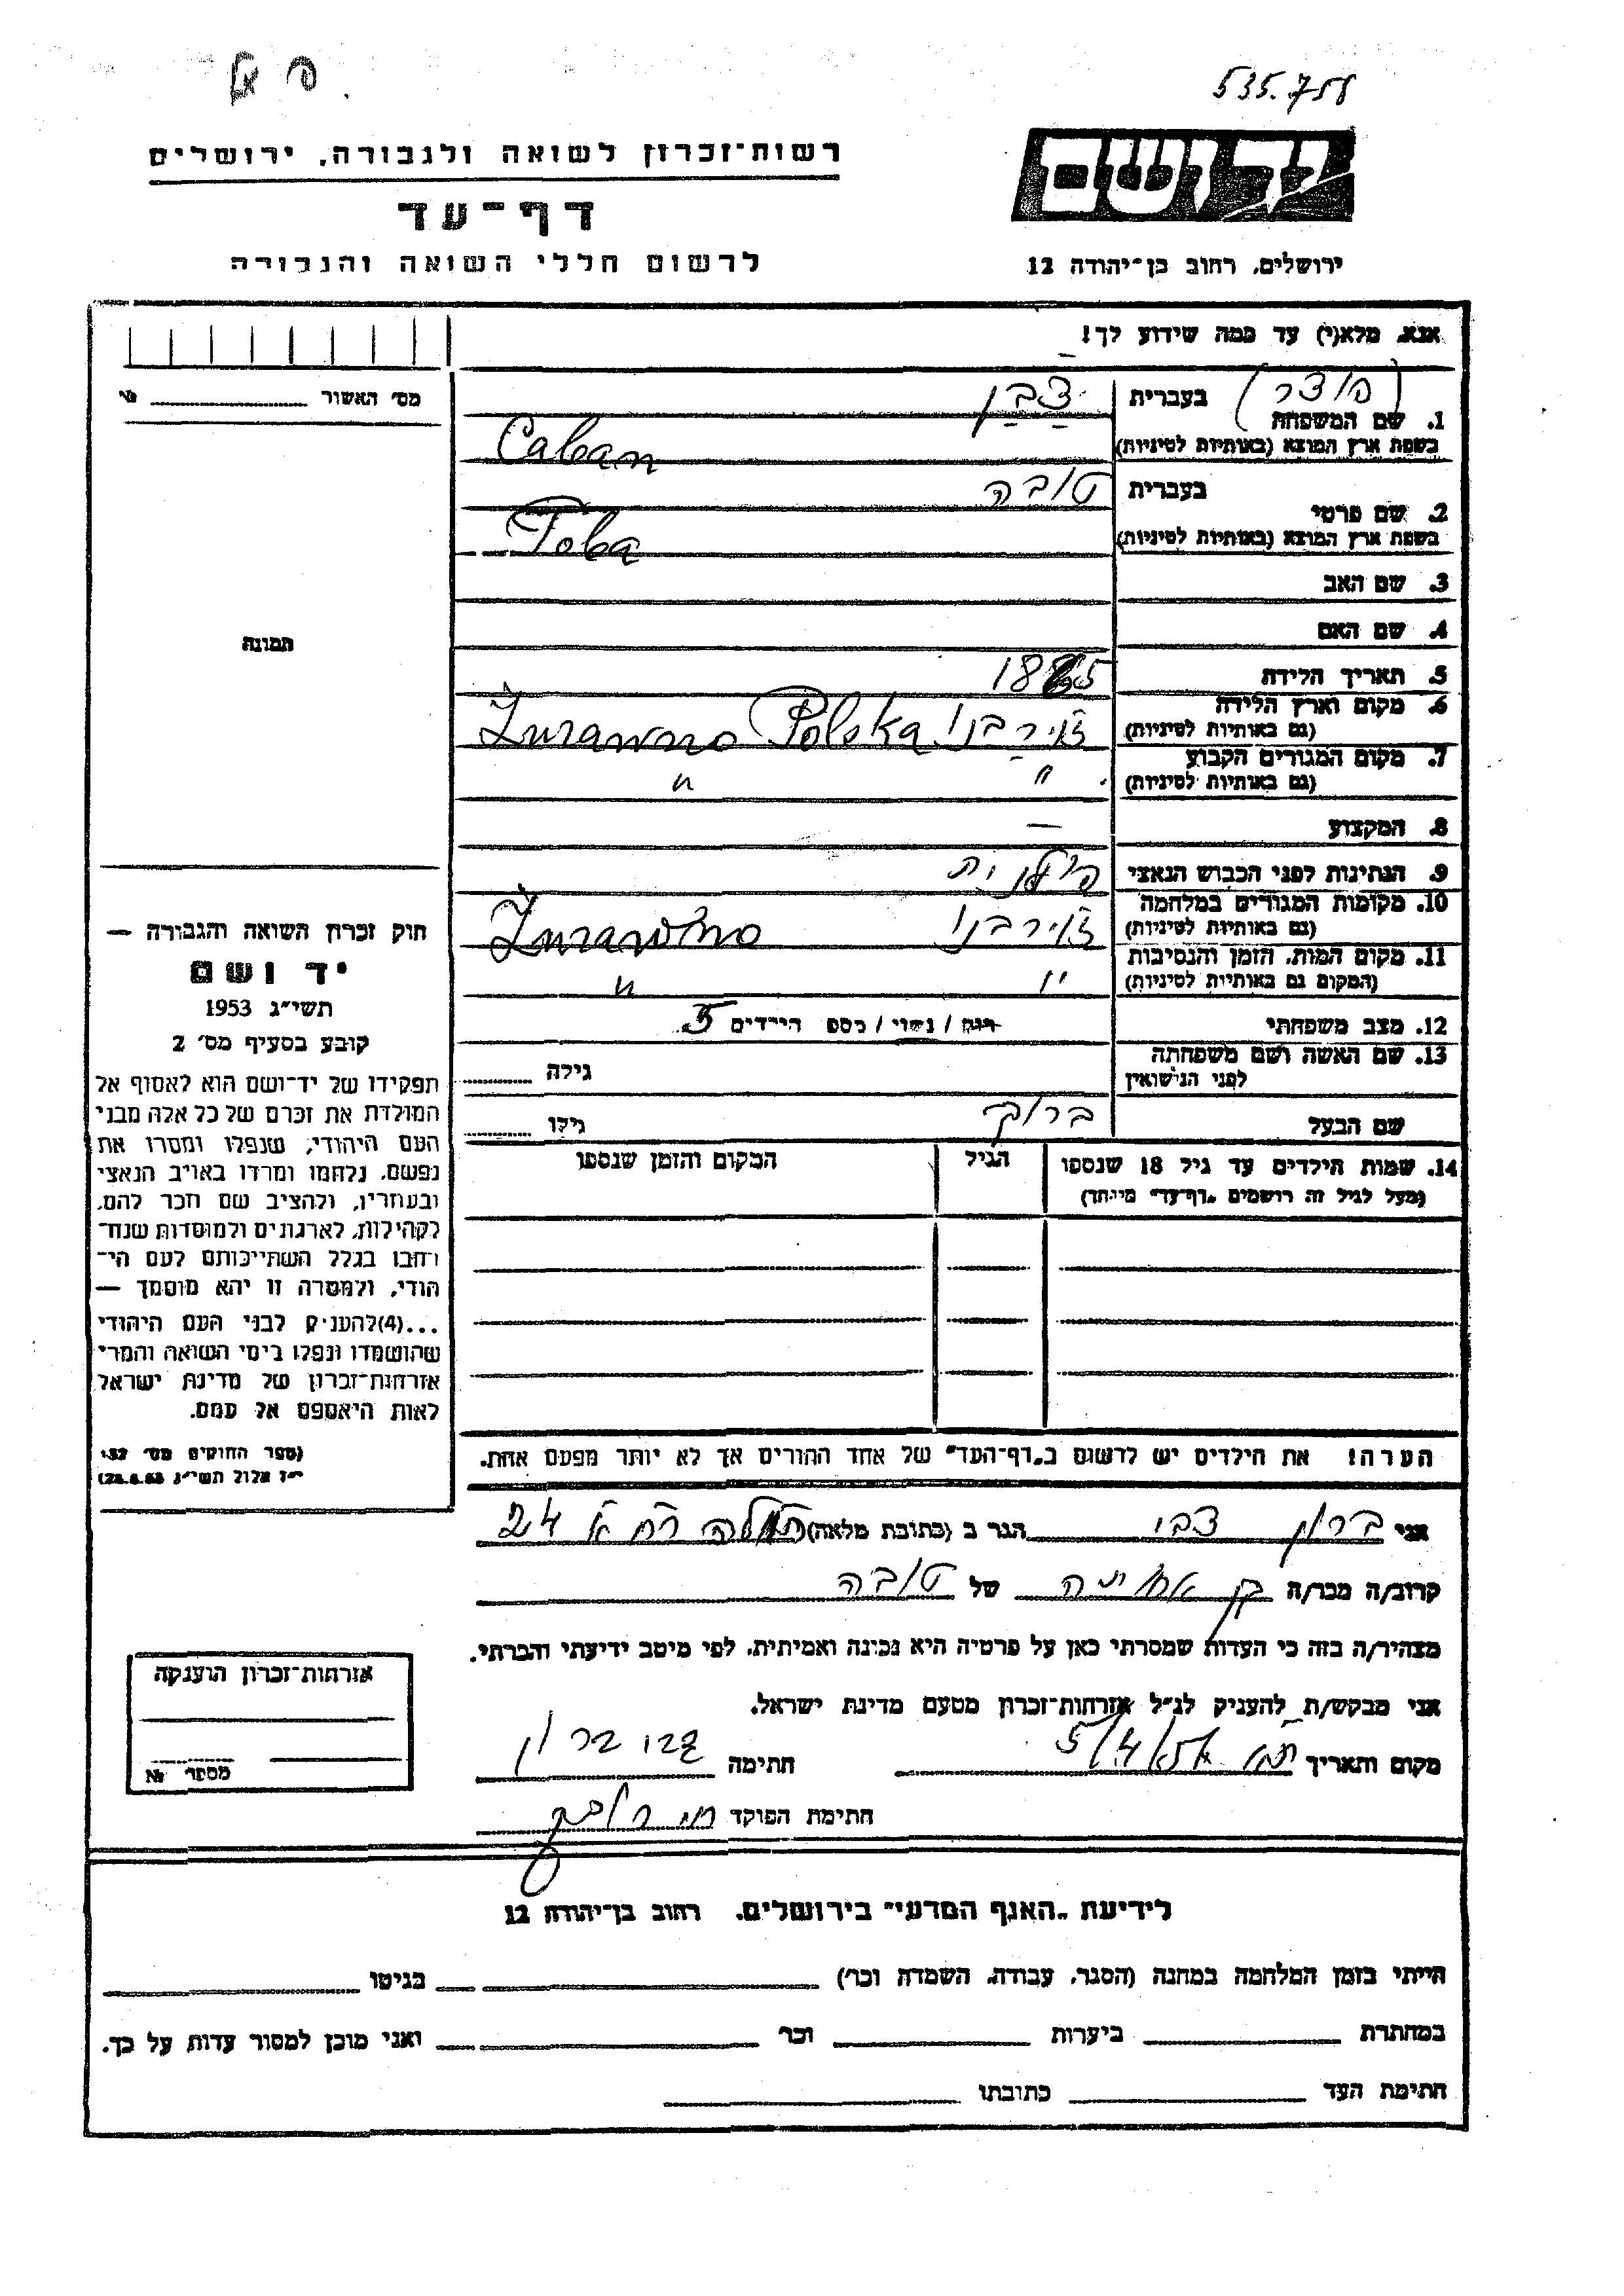 535.7
יד ושם
רשות־זכרון לשואה ולגבורה, ירושלים
דף־עד
לרשום חללי השואה והגבורה
ירושלים, רחוב בן־יהודה 12
אנא, מלא(י) עד כמה שידוע לך!
מס׳ האשור №
בעברית צבן
1. שם המשפחה
בשפת ארץ המוצא (באותיות לטיניות) Caban
בעברית טובה
2. שם פרטי
בשפת ארץ המוצא (באותיות לטיניות) Toba
3. שם האב
4. שם האם
תמונה
5. תאריך הלידה
6. מקום וארץ הלידה
(גם באותיות לטיניות) Żurawno Polska
7. מקום המגורים הקבוע
(גם באותיות לטיניות) " "
8. המקצוע —
9. הנתינות לפני הכבוש הנאצי
10. מקומות המגורים במלחמה
(גם באותיות לטיניות) Żurawno
11. מקום המות, הזמן והנסיבות
(המקום גם באותיות לטיניות) " "
12. מצב משפחתי רוק / נשוי / מספר הילדים 5
13. שם האשה ושם משפחתה
לפני הנישואין גילה
שם הבעל ברוך גילו
14. שמות הילדים עד גיל 18 שנספו הגיל המקום והזמן שנספו
(מעל לגיל זה רושמים „דף־עד״ מיוחד)
חוק זכרון השואה והגבורה —
יד ושם
תשי״ג 1953
קובע בסעיף מס׳ 2
תפקידו של יד־ושם הוא לאסוף אל
המולדת את זכרם של כל אלה מבני
העם היהודי, שנפלו ומסרו את
נפשם, נלחמו ומרדו באויב הנאצי
ובעוזריו, ולהציב שם וזכר להם,
לקהילות, לארגונים ולמוסדות שנח־
רחבו בגלל השתייכותם לעם הי־
הודי, ולמטרה זו יהא מוסמך —
...(4)להעניק לבני העם היהודי
שהושמדו ונפלו בימי השואה והמרי
אזרחות־זכרון של מדינת ישראל
לאות היאספם אל עמם.
(ספר החוקים מס׳ 132
י״ז אלול תשי״ג 28.8.53)
הערה! את הילדים יש לרשום ב„דף־העד״ של אחד ההורים אך לא יותר מפעם אחת.
אני ברון צבי הגר ב (כתובת מלאה) 24
קרוב/ה מכר/ה בן של טובה
מצהיר/ה בזה כי העדות שמסרתי כאן על פרטיה היא נכונה ואמיתית, לפי מיטב ידיעתי והכרתי.
אני מבקש/ת להעניק לנ״ל אזרחות־זכרון מטעם מדינת ישראל.
מקום ותאריך חתימה צבי ברון
חתימת הפוקד
אזרחות־זכרון הוענקה
מספר №
לידיעת „האגף המדעי״ בירושלים, רחוב בן־יהודה 12
הייתי בזמן המלחמה במחנה (הסגר, עבודה, השמדה וכר׳) בגיטו
במחתרת ביערות וכר׳ ואני מוכן למסור עדות על כך.
חתימת העד כתובתו